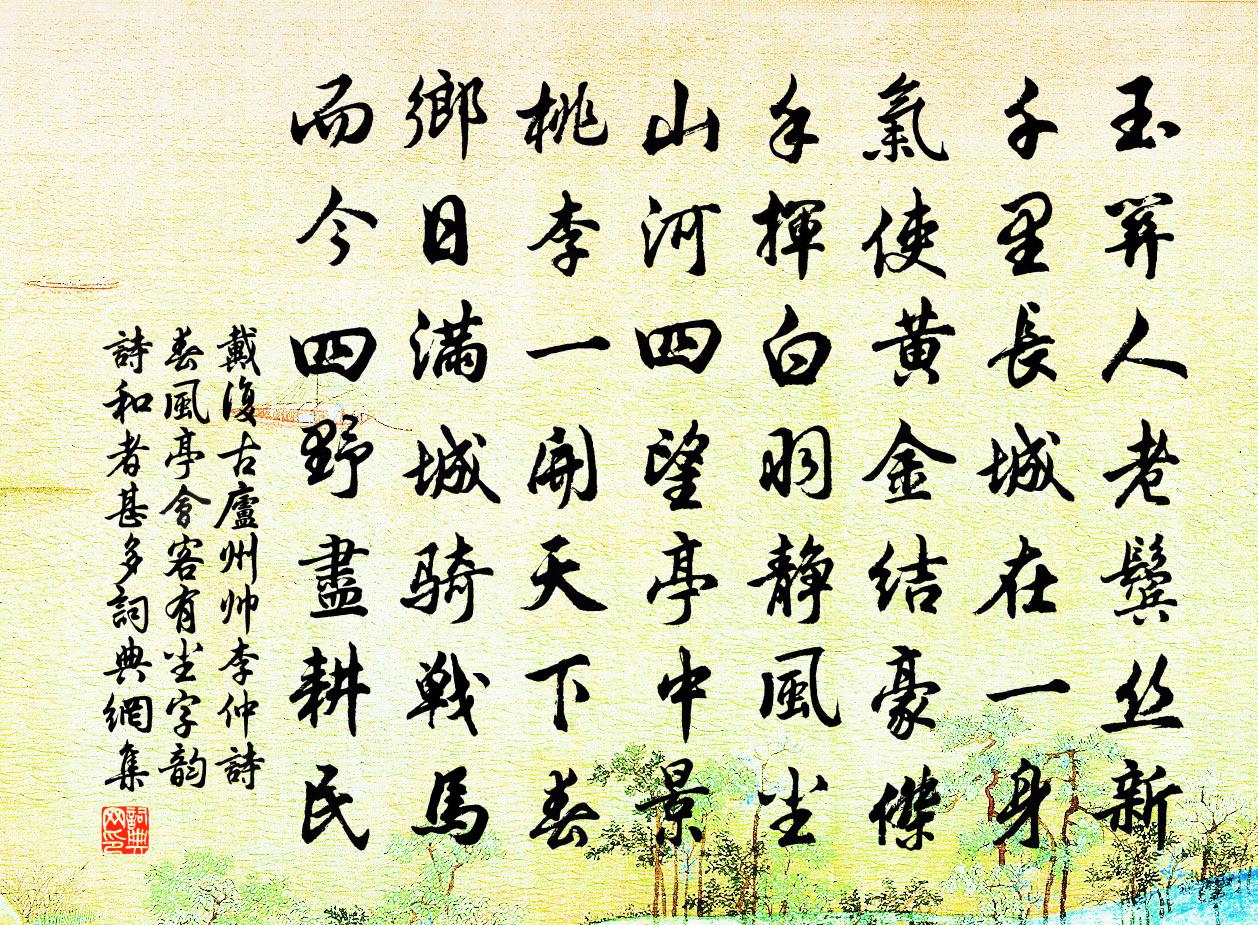 玉關人老鬢丝新
千里長城在一身
氣使黄金結豪傑
手揮白羽静風尘
山河四望亭中景
桃李一開天下春
鄉日滿城騎戦馬
而今四野盡耕民
戴復古廬州帅李仲詩
春風亭會客有尘字韵
詩和者甚多詞典網集
詞典网印